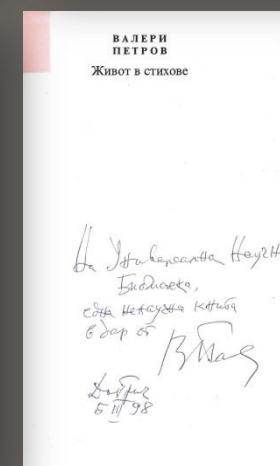 ВАЛЕРИ
ПЕТРОВ
Живот в стихове
На Универсална Научн
Библиотека,
една ненаучна книга
в дар от
Добрич
5 III 98